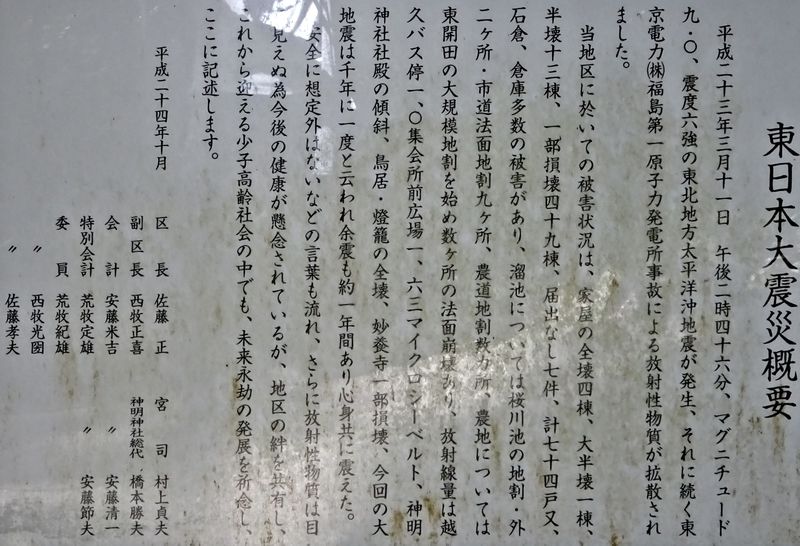 東日本大震災概要
平成二十三年三月十一日　午後二時四十六分、マグニチュード
九・〇、震度六強の東北地方太平洋沖地震が発生、それに続く東
京電力㈱福島第一原子力発電所事故による放射性物質が拡散され
ました。
当地区に於いての被害状況は、家屋の全壊四棟、大半壊一棟、
半壊十三棟、一部損壊四十九棟、届出なし七件、計七十四戸又、
石倉、倉庫多数の被害があり、溜池については桜川池の地割・外
二ヶ所・市道法面地割九ヶ所、農道地割数カ所、農地については
東開田の大規模地割を始め数ヶ所の法面崩壊あり、放射線量は越
久バス停一、〇集会所前広場一、六三マイクロシーベルト、神明
神社社殿の傾斜、鳥居・燈籠の全壊、妙養寺一部損壊、今回の大
地震は千年に一度と云われ余震も約一年間あり心身共に震えた。
安全に想定外はないなどの言葉も流れ、さらに放射性物質は目
見えぬ為今後の健康が懸念されているが、地区の絆を共有し、
これから迎える少子高齢社会の中でも、未来永劫の発展を祈念し、
ここに記述します。
平成二十四年十月
区長　佐藤　正　宮司　村上貞夫
副区長　西牧正喜　神明神社総代　橋本勝夫
会計　安藤米吉　〃　安藤清一
特別会計　荒牧定雄　〃　安藤節夫
委員　荒牧紀雄
〃　西牧光圀
〃　佐藤孝夫